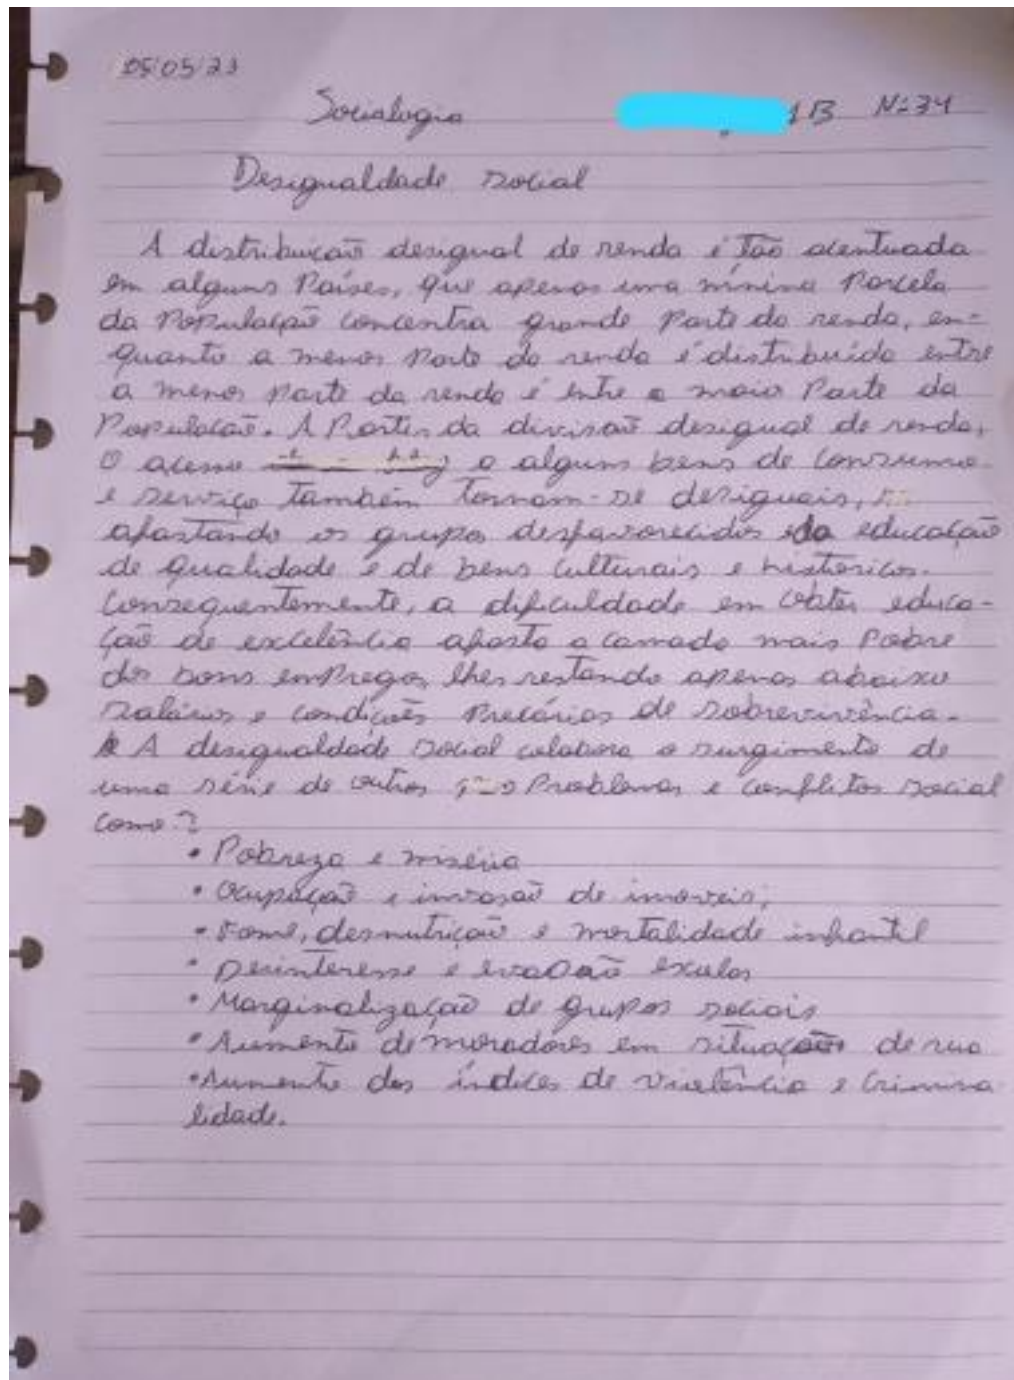 05/05/23
Sociologia 1B Nº34
Desigualdade social
A distribuição desigual de renda é tão acentuada
em alguns Países, que apenas uma mínina Parcela
da População concentra grande parte da renda, en-
quanto a menor Parte da renda é distribuída entre
a menor parte da renda é entre a maior Parte da
População. A Partir da divisão desigual de renda,
O acesso a alguns bens de consumo
e serviço também tornam-se desiguais,
afastando os grupos desfavorecidos da educação
de qualidade e de bens culturais e históricos.
Consequentemente, a dificuldade em obter educa-
ção de excelência afasta a camada mais Pobre
dos bons empregos, lhes restando apenas abaixo
salários e condições Precárias de sobrevivência.
A desigualdade social colabora o surgimento de
uma série de outros Problemas e conflitos social
como:
• Pobreza e miséria
• Ocupação e invasão de imoveis;
• Fome, desnutrição e mortalidade infantil
• Desinteresse e evasão escolar
• Marginalização de grupos sociais
• Aumento de moradores em situação de rua
• Aumento dos índices de violência e Crimina
lidade.